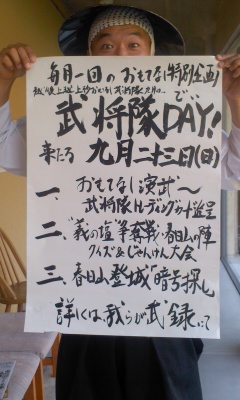 毎月一回のおもてなし特別企画!
越後上越上杉おもてなし武将隊 九月の
で
武将隊DAY!
来たる 九月二十三日(日)
一、おもてなし演武〜
武将隊トレーディングカード進呈
二、"義の塩"争奪戦・春日山の陣
クイズ&じゃんけん大会
三、春日山登城"暗号探し
詳しくは、我らが武録にて